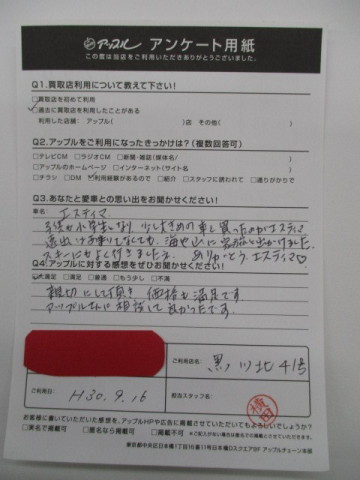 アップル アンケート用紙
この度は当店をご利用いただきありがとうございました。
Q1.買取店利用について教えて下さい!
□買取店を初めて利用
□過去に買取店を利用したことがある
利用した店舗: アップル( )店 その他( )
Q2.アップルをご利用になったきっかけは?(複数回答可)
□テレビCM □ラジオCM □新聞・雑誌(媒体名/ )
□アップルのホームページ □インターネット(サイト名 )
□チラシ □DM □利用経験があるので □紹介 □スタッフに誘われて □通りがかりで
Q3.あなたと愛車との思い出をお聞かせください!
車名: エスティマ
子供が小学生になり、少し大きめの車と買ったのがエスティマ
海や山に出かけました。
スキーにもよく行きましたネ。ありがとう、エスティマ♡
Q4.アップルに対する感想をぜひお聞かせください!
□大満足 □満足 □普通 □もう少し □不満
親切にして頂き 価格も満足です
アップルさんに相談して良かったです。
ご利用店名: 黒川北4号
ご利用日: H30.9.16
担当スタッフ名:
お客様に書いていただいた感想を、アップルHPや広告に掲載させていただいてもよろしいでしょうか?
□実名で掲載可 □匿名なら掲載可 □掲載不可
東京都中央区日本橋1丁目16番11号日本橋Dスクエア9F アップルチェーン本部